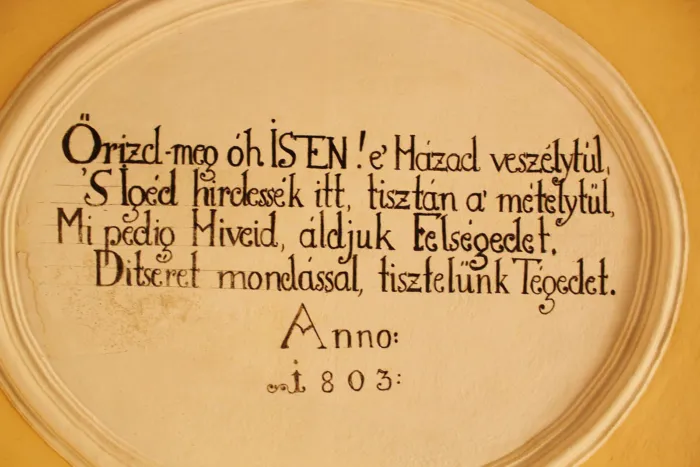 Őrizd-meg óh İSTEN! e' Házad veszélytül,
'S Igéd hirdessék itt, tisztán a' mételytül,
Mi pedig Hiveid, áldjuk Felségedet.
Ditséret mondással, tisztelünk Tégedet.
Anno:
1803: